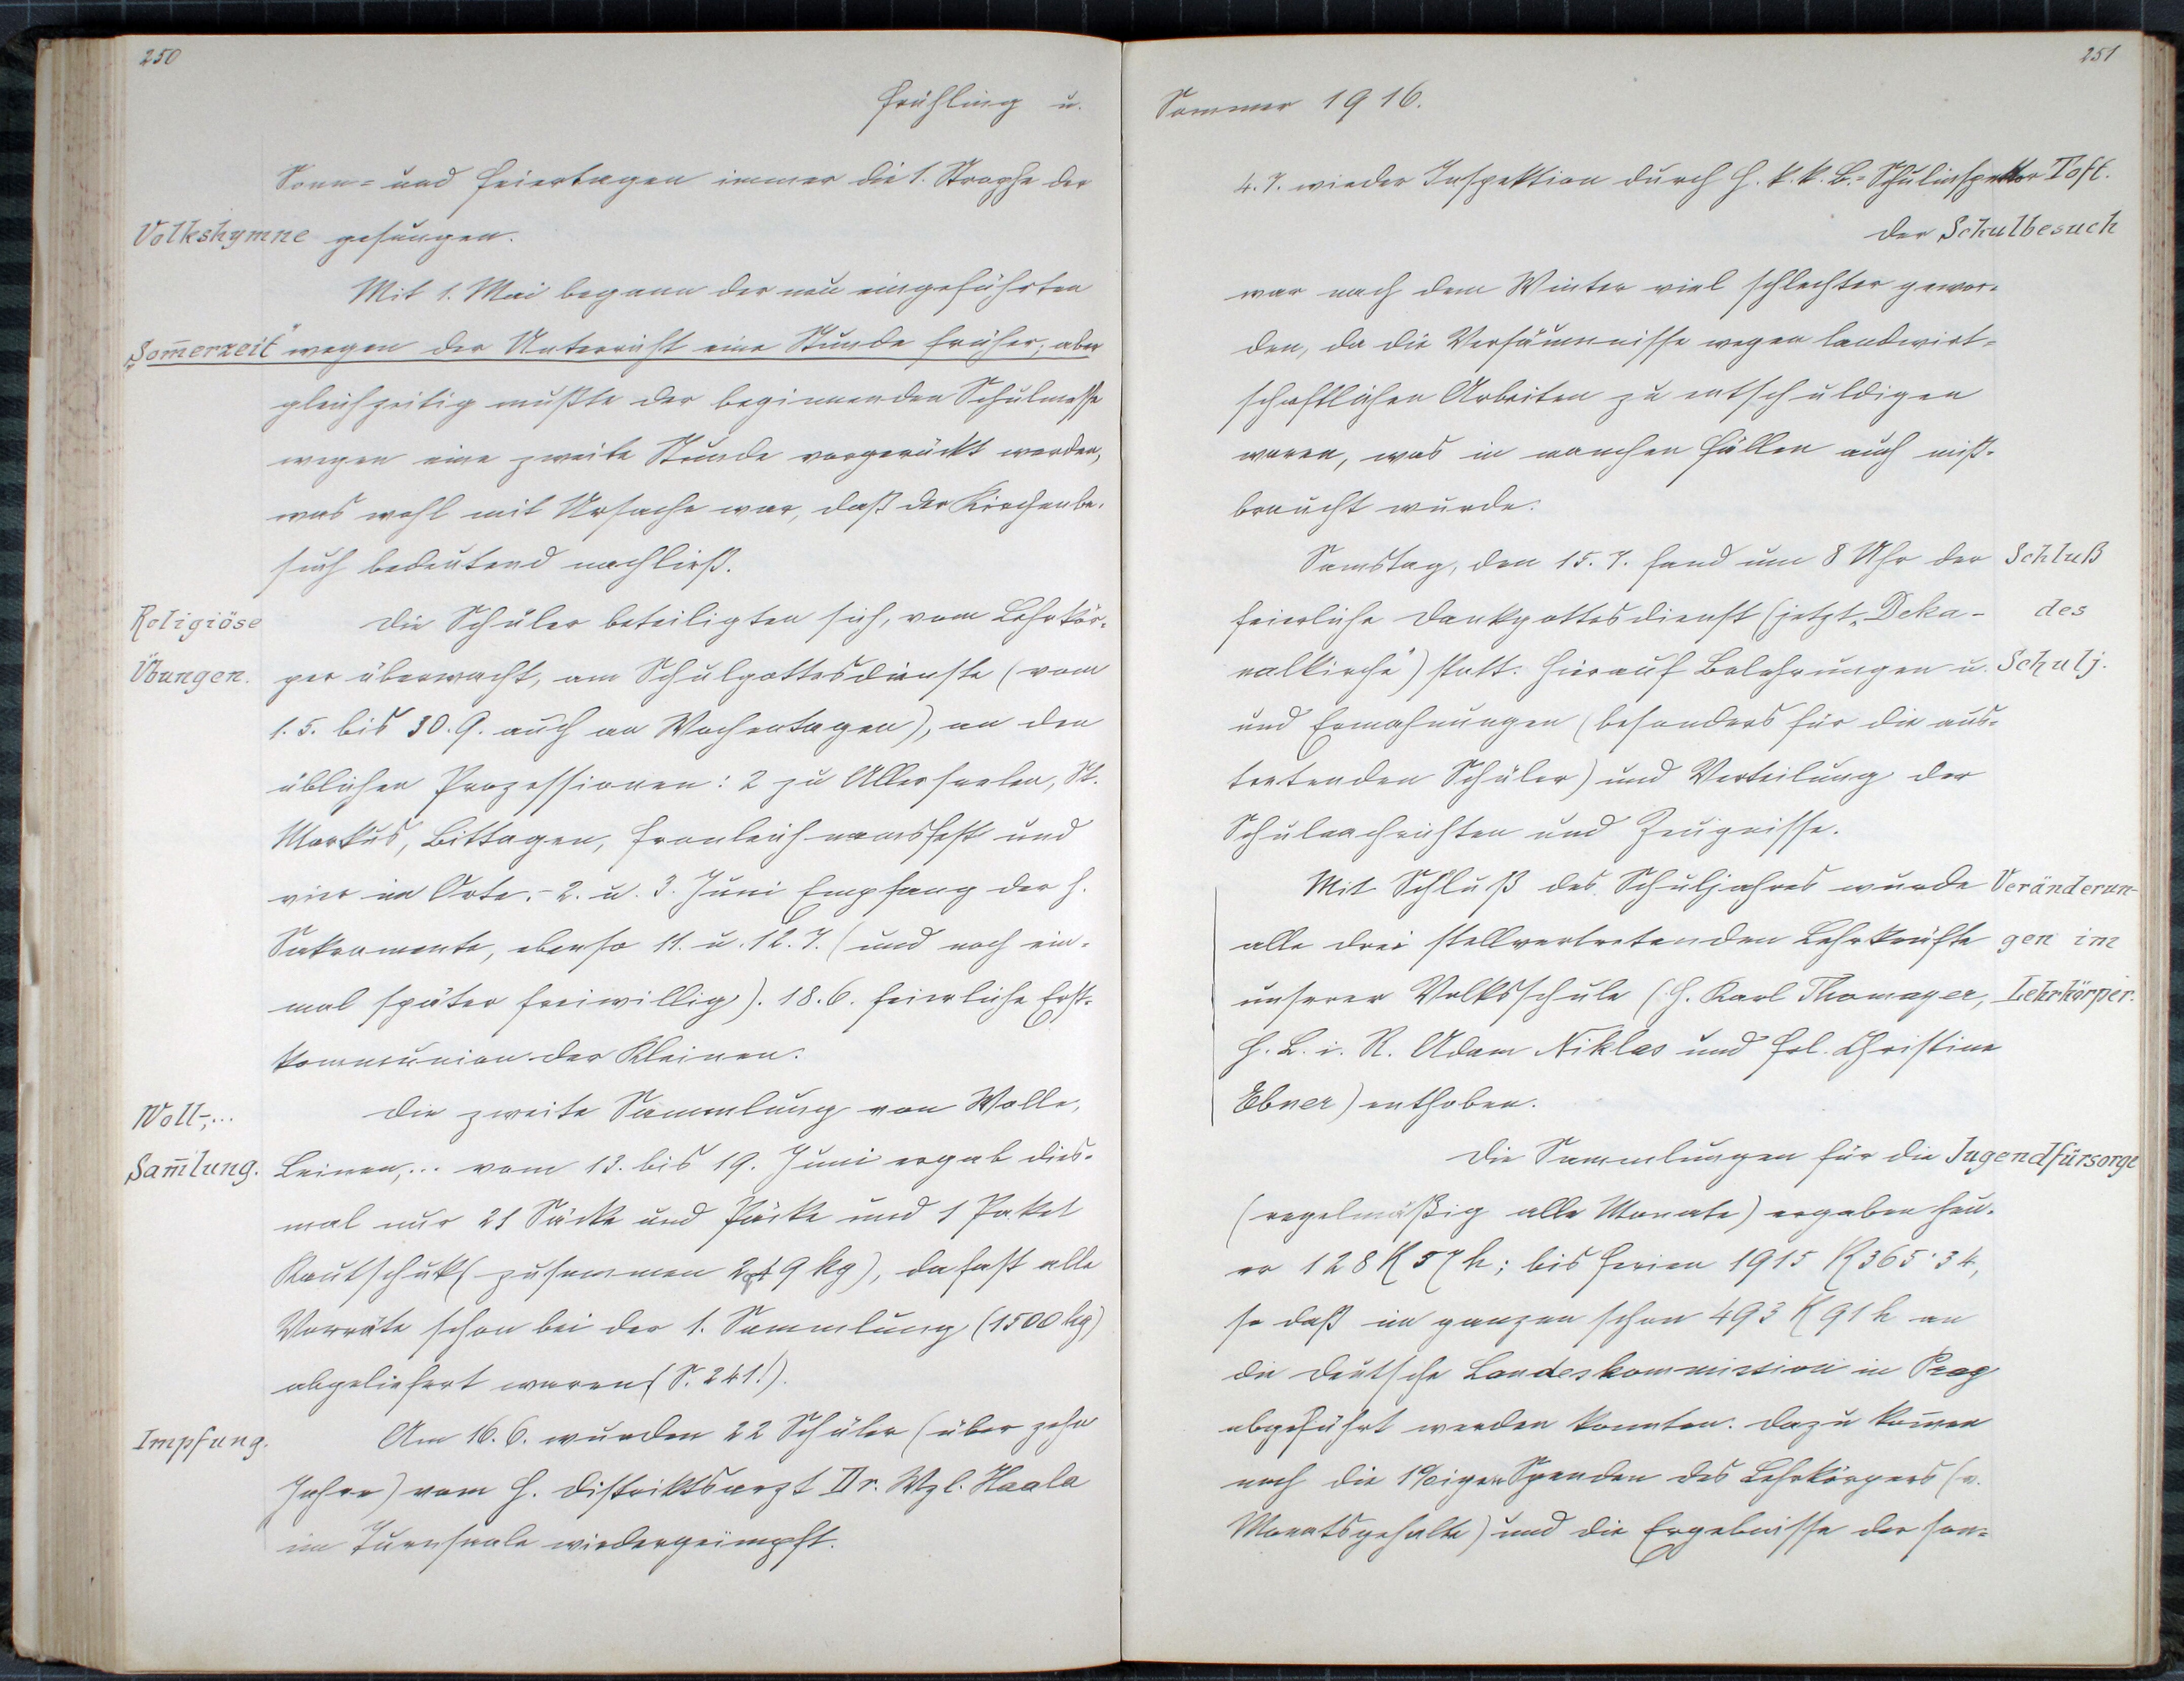 250
Frühling u.
Sonn= und Feiertagen immer die 1. Strophe der
Volkshymne gesungen.
Mit 1. Mai begann der neu eingeführten
„Som̄erzeit" wegen der Unterricht eine Stunde früher; aber
gleichzeitig mußte der beginnenden Schulmesse
wegen eine zweite Stunde vorgerückt werden,
was wohl mit Ursache war, daß der Kirchenbe-
such bedeutend nachließ.
Religiöse Die Schüler beteiligten sich, vom Lehrkör-
Übungen. per überwacht, am Schulgottesdienste (vom
1. 5. bis 30. 9. auch an Wochentagen), an den
üblichen Prozessionen: 2 zu Allerseelen, St.
Markus, Bittagen, Fronleichnamsfest und
vier im Orte. - 2. u. 3. Juni Empfang der h.
Sakramente, ebenso 11. u. 12. 7. (und noch ein-
mal später freiwillig). 18. 6. feierliche Erst-
kommunion der Kleinen.
Woll-,... Die zweite Sammlung von Wolle,
Sam̄lung. Leinen,... vom 13. bis 19. Juni ergab dies-
mal nur 21 Säcke und Päcke und 1 Paket
Kautschuk (zusammen 249 kg), da fast alle
Vorräte schon bei der 1. Sammlung (1500 kg)
abgeliefert waren (S. 241!).
Impfung. Am 16. 6. wurden 22 Schüler (über zehn
Jahre) vom H. Distriktsarzt Dr. Wzl. Haala
im Turnsaale wiedergeimpft.
251
Sommer 1916.
4. 7. wieder Inspektion durch H. k. k. B.= Schulinspektor Toft.
Der Schulbesuch
war nach dem Winter viel schlechter gewor-
den, da die Versäumnisse wegen landwirt-
schaftlichen Arbeiten zu entschuldigen
waren, was in manchen Fällen auch miß-
braucht wurde.
Samstag, den 15. 7. fand um 8 Uhr der Schluß
feierliche Dankgottesdienst (jetzt „Deka- des
nalkirche") statt. Hierauf Belehrungen u. Schulj.
und Ermahnungen (besonders für die aus-
tretenden Schüler) und Verteilung der
Schulnachrichten und Zeugnisse.
Mit Schluß des Schuljahres wurde Veränderun-
alle drei stellvertretenden Lehrkräfte gen im
unserer Volksschule (H. Karl Thomayer, Lehrkörper.
H. L. i. R. Adam Niklas und Frl. Christine
Ebner) enthoben.
Die Sammlungen für die Jugendfürsorge
(regelmäßig alle Monate) ergaben heu-
er 128 K 57 h; bis Ferien 1915 K 365·34,
so daß im ganzen schon 493 K 91 h an
die deutsche Landeskommission in Prag
abgeführt werden konnten. Dazu kom̄en
noch die 1%igen Spenden des Lehrkörpers (v.
Monatsgehalte) und die Ergebnisse der son-